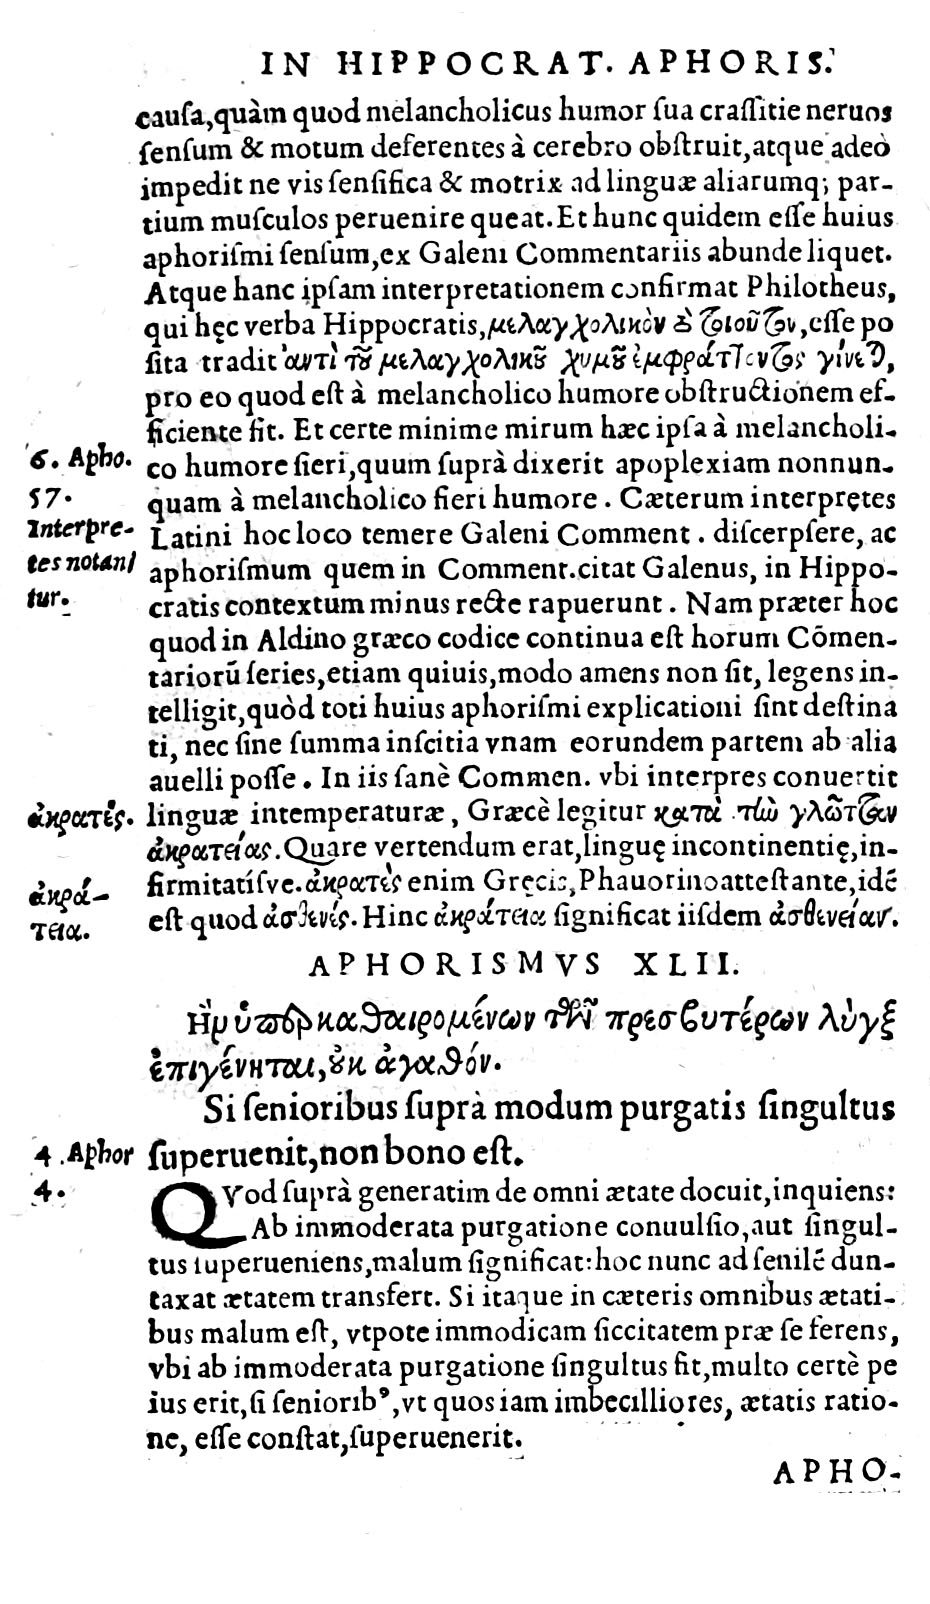 IN HIPPOCRAT. APHORIS.
cauſa,quàm quod melancholicus humor ſua craſſitie neruos
ſenſum & motum deferentes à cerebro obſtruit,atque adeò
impedit ne vis ſenſifica & motrix ad linguæ aliarumq; par-
tium muſculos peruenire queat. Et hunc quidem eſſe huius
aphoriſmi ſenſum,ex Galeni Commentariis abunde liquet.
Atque hanc ipſam interpretationem confirmat Philotheus,
qui hęc verba Hippocratis,μελαγχολικὸν δὲ τȣ̃τον,eſſe po
ſita tradit ἀντὶ τȣ̃ μελαγχολικȣ̃ χυμȣ̃ ἐμφράτ]οντος γίνεται,
pro eo quod eſt à melancholico humore obſtructionem ef-
ficiente fit. Et certe minime mirum hæc ipſa à melancholi-
6. Apho.
co humore fieri,quum ſuprà dixerit apoplexiam nonnun-
57.
quam à melancholico fieri humore. Cæterum interpretes
Interpre-
Latini hoc loco temere Galeni Comment. diſcerpſere, ac
tes notan
aphoriſmum quem in Comment.citat Galenus, in Hippo-
tur.
cratis contextum minus recte rapuerunt. Nam præter hoc
quod in Aldino græco codice continua eſt horum Cõmen-
tariorũ ſeries,etiam quiuis,modo amens non ſit, legens in-
telligit,quòd toti huius aphoriſmi explicationi ſint deſtina
ti, nec ſine ſumma inſcitia vnam eorundem partem ab alia
auelli poſſe. In iis ſanè Commen. vbi interpres conuertit
ἀκρατές.
linguæ intemperaturæ, Græcè legitur κατὰ τὼ γλῶτταν
ἀκρατείας. Quare vertendum erat,linguę incontinentię,in-
firmitatíſve. ἀκρατὲς enim Gręcis, Phauorino atteſtante,idẽ
ἀκρά-
eſt quod ἀσθενές. Hinc ἀκράτεια ſignificat iiſdem ἀσθενείαν.
τεια.
APHORISMVS XLII.
Ἢν ὑπερκαθαιρομένων τῶν πρεσβυτέρων λὺγξ
ἐπιγένηται,ȣ̓κ ἀγαθόν.
Si ſenioribus ſuprà modum purgatis ſingultus
4. Aphor
ſuperuenit,non bono eſt.
4.
QVod ſuprà generatim de omni ætate docuit,inquiens:
Ab immoderata purgatione conuulſio,aut ſingul-
tus ſuperueniens,malum ſignificat: hoc nunc ad ſenilẽ dun-
taxat ætatem transfert. Si itaque in cæteris omnibus ætati-
bus malum eſt, vtpote immodicam ſiccitatem præ ſe ferens,
vbi ab immoderata purgatione ſingultus fit,multo certè pe
ius erit,ſi ſeniorib⁹,vt quos iam imbecilliores, ætatis ratio-
ne, eſſe conſtat,ſuperuenerit.
APHO-